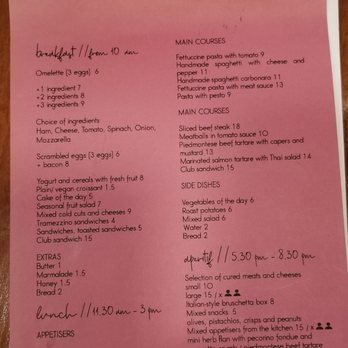 breakfast // from 10 am
Omelette (3 eggs) 6
+1 ingredient 7
+2 ingredients 8
+3 ingredients 9
Choice of ingredients
Ham, Cheese, Tomato, Spinach, Onion,
Mozzarella
Scrambled eggs (3 eggs) 6
+ bacon 8
Yogurt and cereals with fresh fruit 8
Plain/ vegan croissant 1.5
Cake of the day 5
Seasonal fruit salad 7
Mixed cold cuts and cheeses 9
Tramezzino sandwiches 4
Sandwiches, toasted sandwiches 5
Club sandwich 15
EXTRAS
Butter 1
Marmalade 1.5
Honey 1.5
Bread 2
lunch // 11.30 am - 3 pm
APPETISERS
MAIN COURSES
Fettuccine pasta with tomato 9
Handmade spaghetti with cheese and
pepper 11
Handmade spaghetti carbonara 11
Fettuccine pasta with meat sauce 13
Pasta with pesto 9
MAIN COURSES
Sliced beef steak 18
Meatballs in tomato sauce 10
Piedmontese beef tartare with capers and
mustard 13
Marinated salmon tartare with Thai salad 14
Club sandwich 15
SIDE DISHES
Vegetables of the day 6
Roast potatoes 6
Mixed salad 6
Water 2
Bread 2
aperitif // 5.30 pm - 8.30 pm
Selection of cured meats and cheeses
small 10
large 15 / x
Italian-style bruschetta box 8
Mixed snacks 5
olives, pistachios, crisps and peanuts
Mixed appetisers from the kitchen 15 / x
mini herb flan with pecorino fondue and
piedmontese beef tartare